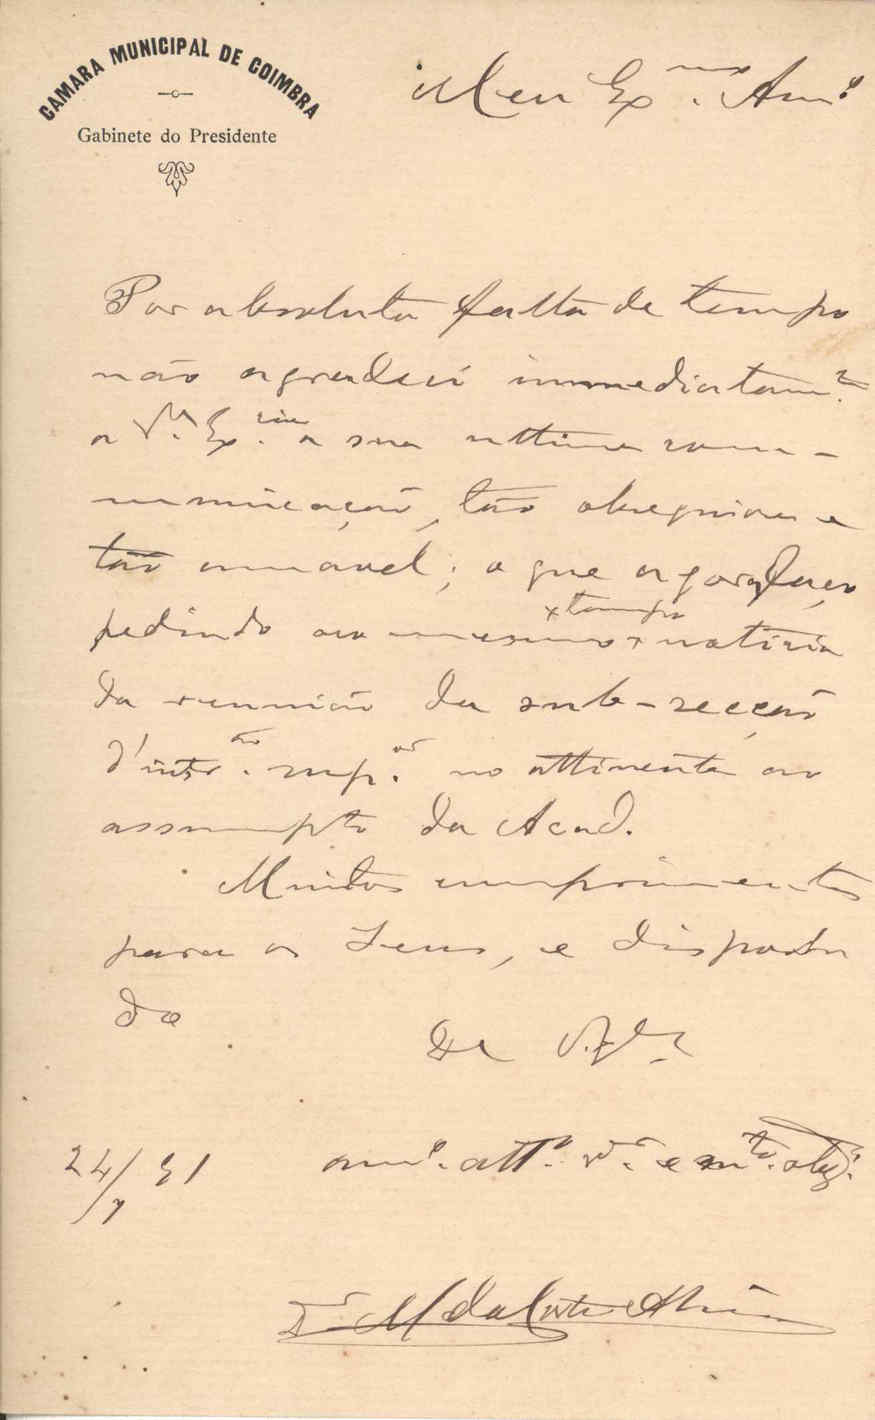 CAMARA MUNICIPAL DE COIMBRA
Gabinete do Presidente
Meu Ex.mo Am.o
Por absoluta falta de tempo
não agradeci immediatam.te
a V. Ex.cia a sua ultima com-
municação, tão obsequiosa e
tão amavel; o que agora faço
pedindo ao mesmo x tempo x noticia
da reunião da sub-secção
d'instr.ão sup.or no attinente ao
assumpto da Acad.
Muitos cumprimentos
para os Seus, e disponha
do
De V. Ex.
am.o att.o v.or e m.to obg.
24/7 31